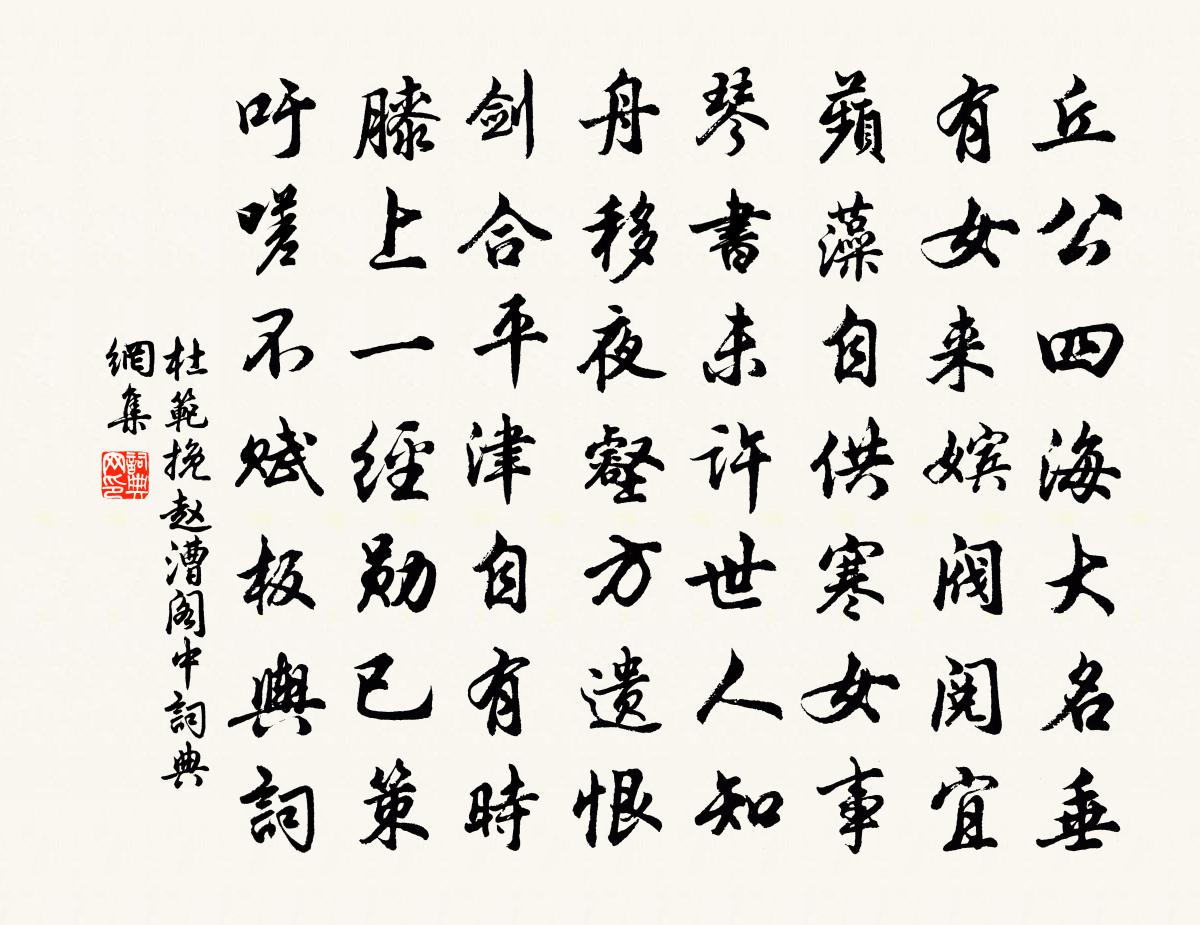 丘公四海大名垂
有女来嫔阀阅宜
蘋藻自供寒女事
琴書未许世人知
舟移夜壑方遗恨
剑合平津自有時
膝上一經勋已策
吁嗟不赋板輿詞
杜範挽赵漕阁中詞典
網集
詞典網印